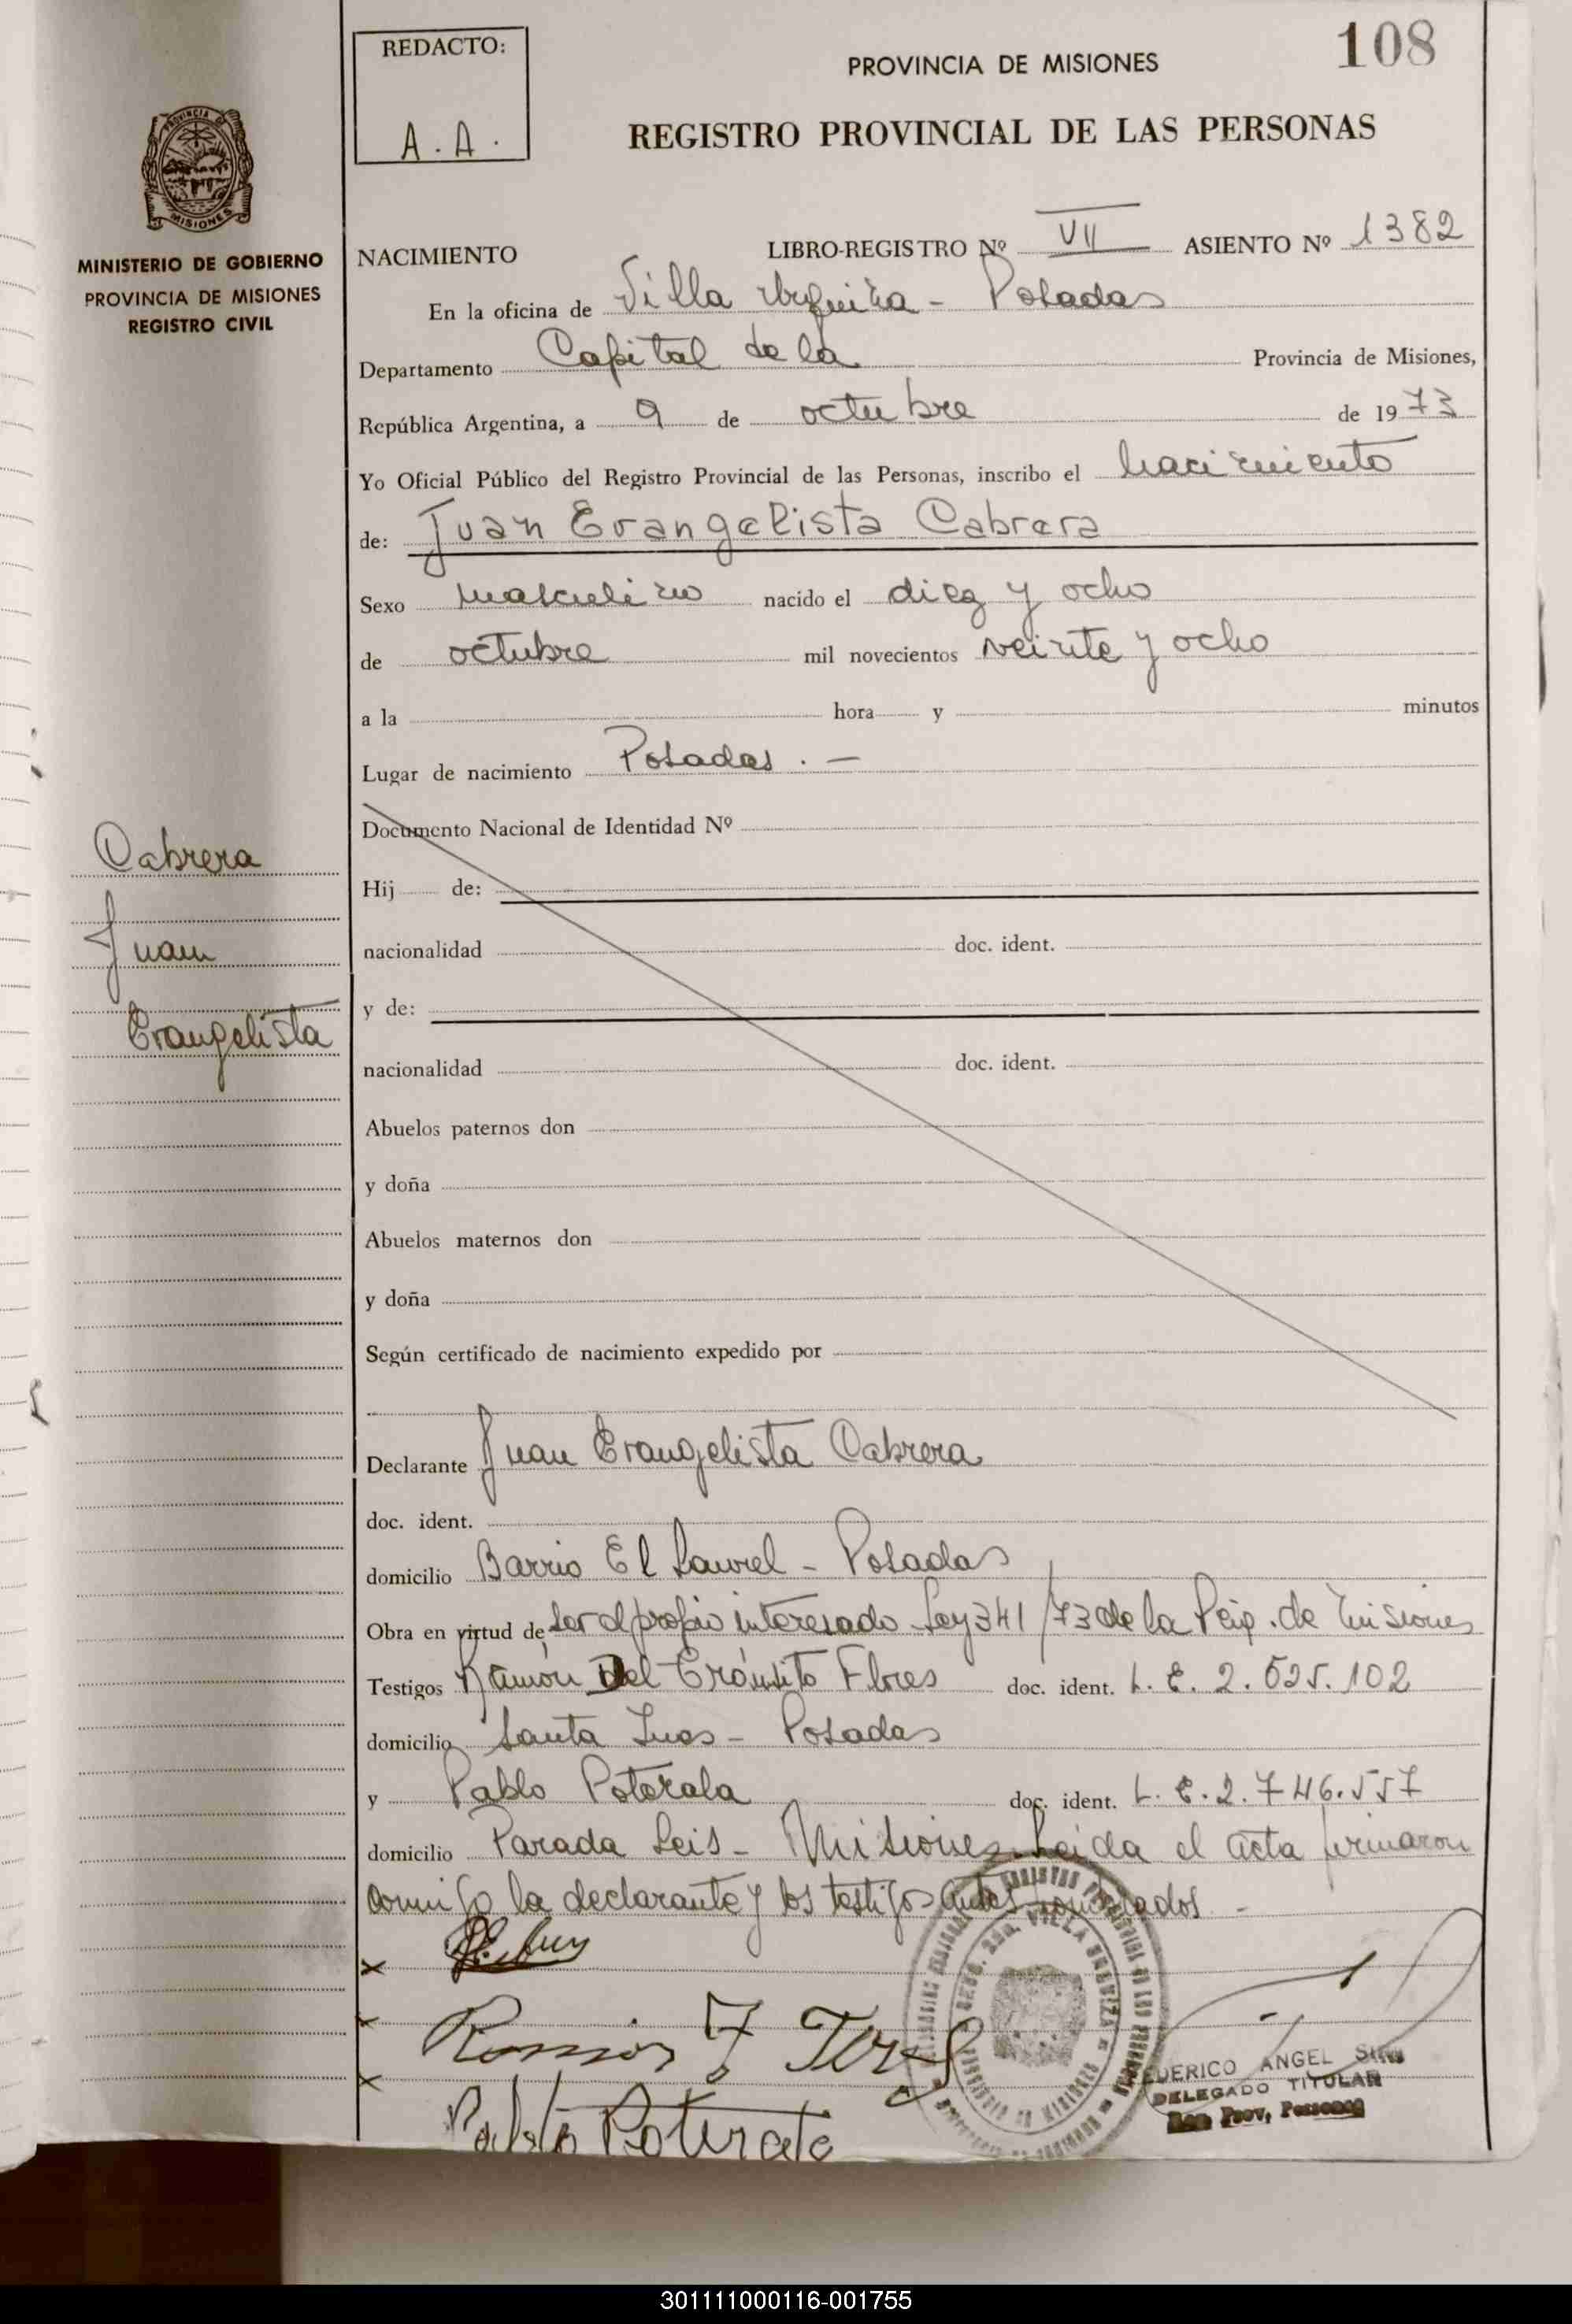 REDACTO:
A. A.
PROVINCIA DE MISIONES
108
REGISTRO PROVINCIAL DE LAS PERSONAS
PROVINCIA DE
MISIONES
MINISTERIO DE GOBIERNO
PROVINCIA DE MISIONES
REGISTRO CIVIL
NACIMIENTO LIBRO-REGISTRO Nº VII ASIENTO Nº 1382
En la oficina de Villa Urquiza - Posadas
Departamento Capital de la Provincia de Misiones,
República Argentina, a 9 de octubre de 1973
Yo Oficial Público del Registro Provincial de las Personas, inscribo el nacimiento
de: Juan Evangelista Cabrera
Sexo masculino nacido el diez y ocho
de octubre mil novecientos veinte y ocho
a la hora y minutos
Lugar de nacimiento Posadas . —
Documento Nacional de Identidad Nº
Cabrera
Juan
Evangelista
Hij de:
nacionalidad doc. ident.
y de:
nacionalidad doc. ident.
Abuelos paternos don
y doña
Abuelos maternos don
y doña
Según certificado de nacimiento expedido por
Declarante Juan Evangelista Cabrera
doc. ident.
domicilio Barrio El Laurel - Posadas
Obra en virtud de ser el propio interesado Ley 341/73 de la de Misiones
Testigos Ramón Del Tránsito Flores doc. ident. L. E. 2.525.102
domicilio Santa Ines - Posadas
y Pablo Poterala doc. ident. L. E. 2.746.557
domicilio Parada Leis - Misiones. Leida el acta firmaron
conmigo la declarante y los testigos antes nombrados -
x
x Ramon F
x Pablo Poterala
VILLA URQUIZA
FEDERICO ANGEL
DELEGADO TITULAR
Reg. Prov. Personas
301111000116-001755